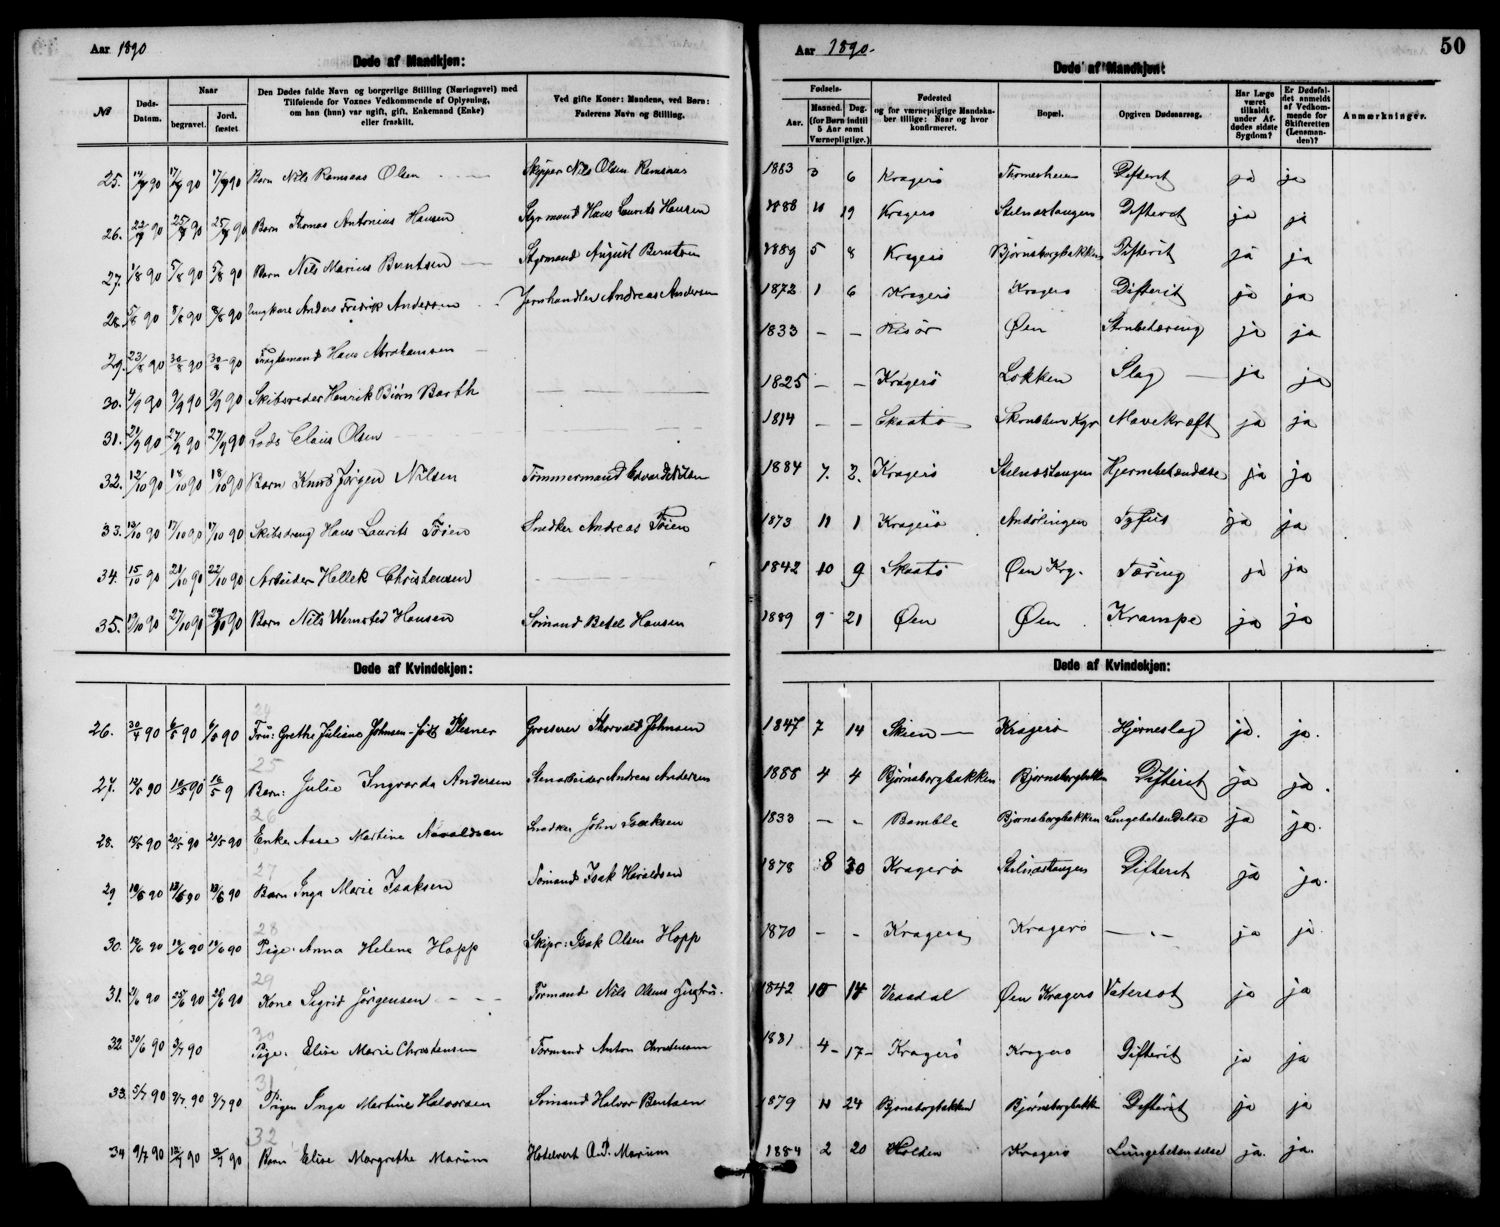 Aar 1890
Døde af Mandkjøn:
№ | Døds-Datum. | Naar begravet. | Jord. fæstet. | Den Dødes fulde Navn og borgerlige Stilling (Næringsvei) med Tilføiende for Voxnes Vedkommende af Oplysning, om han (hun) var ugift, gift, Enkemand (Enke) eller fraskilt. | Ved gifte Koner: Mandens, ved Børn: Faderens Navn og Stilling.
25. Barn Nils Ramsaas Olsen | Skipper Nils Olsen Ramsaas
26. 22/7 90 25/7 90 25/7 90 Barn Thomas Antonius Hansen | Styrmand Hans Laurits Hansen
27. 1/8 90 5/8 90 5/8 90 Barn Nils Marius Berntsen | Styrmand August Berntsen
28. 5/8 90 8/8 90 8/8 90 Ungkarl Anders Fredrik Andersen | Jernhandler Andreas Andersen
29. 23/8 90 30/8 90 30/8 90 Fragtemand Hans Abrahamsen
30. 4/9 90 9/9 90 9/9 90 Skibsreder Henrik Biørn Barth
31. 21/9 90 27/9 90 27/9 90 Lods Claus Olsen
32. 12/10 90 18/10 90 18/10 90 Barn Knut Jørgen Nilsen | Tømmermand Edvard Nilsen
33. 17/10 90 17/10 90 Skibsdreng Hans Laurits Tøien | Snedker Andreas Tøien
34. 15/10 90 21/10 90 22/10 90 Arbeider Hellek Christensen
35. 27/10 90 Barn Nils Wernsted Hansen | Sømand Betel Hansen
Døde af Kvindekjøn:
24
26. 30/4 90 6/5 90 6/5 90 Fru: Grethe Juliane Johnsen født Plesner | Grosserer Thorvald Johnsen
25
27. 12/5 90 16/5 90 16/5 9 Barn: Julie Ingvarda Andersen | Stenarbeider Andreas Andersen
26
28. 20/5 90 20/5 90 Enke Aase Martine Navaldsen | Snedker John Isaksen
27
29 10/6 90 13/6 90 Barn Inga Marie Isaksen | Sømand Isak Haraldsen
28
30. Pige. Anna Helene Hopp | Skipr: Isak Olsen Hopp
29
31. 21/6 90 25/6 90 Kone Sigrid Jørgensen | Formand Nils Olsens
30
32 30/6 90 3/7 90 Pige. Elise Marie Christensen | Formand Anton Christensen
31
33. 5/7 90 9/7 90 9/7 90 Pigen Inga Martine Halvorsen | Sømand Halvor Bentsen
32
34 9/7 90 12/7 90 12/7 90 Barn Elise Margrethe Marum | Hotelvert O.P. Marum
Aar 1890.
50
Døde af Mandkjøn:
Fødsels- Aar. | Maaned. | Dag. (for Børn indtil 5 Aar samt Værnepligtige.) | Fødested og for værnepligtige Mandskaber tillige: Naar og hvor konfirmeret. | Bopæl. | Opgiven Dødsaarsag. | Har Læge været tilkaldt under Afdødes sidste Sygdom? | Er Dødsfaldet anmeldt af Vedkommende for Skifteretten (Lensmanden)? | Anmærkninger.
1883 3 6 Kragerø Thomesheien Difterit ja ja
1888 11 19 Kragerø Stilnæstangen Difterit ja ja
1889 5 8 Kragerø Bjørnsborgbakken Difterit ja ja
1872 1 6 Kragerø Kragerø Difterit ja ja
1833 – – Risør Øen Strubetæring ja ja
1825 – – Kragerø Løkken Slag ja ja
1814 – – Skaatø Skrubben Kgr Mavekræft ja ja
1884 7. 2. Kragerø Stilnæstangen Hjernebetændelse ja ja
1873 11 1 Kragerø Andølingen Tyfus ja ja
1842 10 9 Skaatø Øen Krg. Tæring ja ja
1889 9 21 Øen Øen Krampe ja ja
Døde af Kvindekjøn:
1847 7 14 Skien Kragerø Hjerneslag ja. ja.
1888 4 4 Bjørnsborgbakken Bjørnsborgbakken Difterit ja ja.
1833 – – Bamble Bjørnsborgbakken Lungebetændelse ja ja.
1878 8 30 Kragerø Stilnæstangen Difterit ja ja.
1870 – – Kragerø Kragerø – „ – ja ja.
1842 Vraadal Øen Kragerø Vatersot ja ja
1881 4 – 17 – Kragerø Kragerø Difterit ja ja
1879 11 24 Bjønsborgbakken Bjørnsborgbakk Difterit ja ja
1884 2 20 Holden Kragerø Lungebetændelse ja. ja.